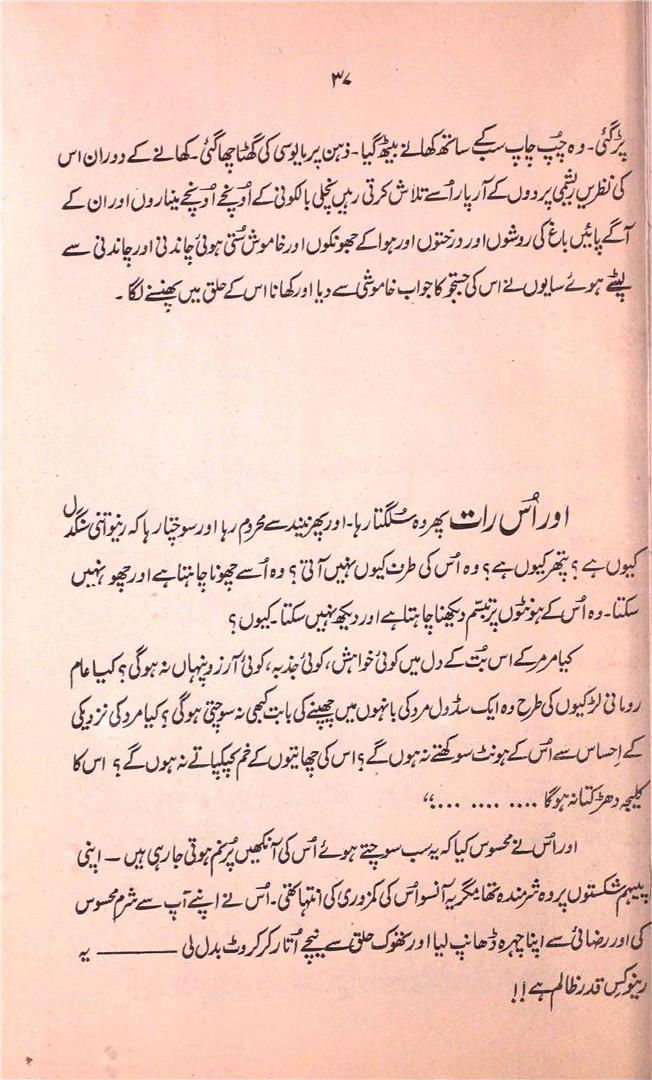 ۳۷
پڑ گئی۔ وہ چپ چاپ سب کے ساتھ کھانے بیٹھ گیا۔ ذہن پر مایوسی کی گھٹا چھا گئی۔ کھانے کے دوران اس
کی نظریں ریشمی پردوں کے آر پار اُسے تلاش کرتی رہیں نچلی بالکونی کے اُونچے اُونچے میناروں اور ان کے
آگے پائیں باغ کی روشوں اور درختوں اور ہوا کے جھونکوں اور خاموش سُتی ہوئی چاندنی اور چاندنی سے
لپٹے ہوئے سایوں نے اس کی جستجو کا جواب خاموشی سے دیا اور کھانا اس کے حلق میں پھنسنے لگا۔
اور اُس رات پھر وہ سُلگتا رہا۔ اور پھر نیند سے محروم رہا اور سوچتا رہا کہ رینو اتنی سنگدل
کیوں ہے؟ پتھر کیوں ہے؟ وہ اُس کی طرف کیوں نہیں آتی؟ وہ اُسے چھونا چاہتا ہے اور چھو نہیں
سکتا۔ وہ اس کے ہونٹوں پر تبسّم دیکھنا چاہتا ہے اور دیکھ نہیں سکتا۔ کیوں؟
کیا مرمر کے اس بُت کے دل میں کوئی خواہش، کوئی جذبہ، کوئی آرزو پنہاں نہ ہوگی؟ کیا عام
رومانی لڑکیوں کی طرح وہ ایک سڈول مرد کی بانہوں میں چھپنے کی بابت کبھی نہ سوچتی ہوگی؟ کیا مرد کی نزدیکی
کے اِحساس سے اُس کے ہونٹ سوکھتے نہ ہوں گے؟ اس کی چھاتیوں کے خم کپکپاتے نہ ہوں گے؟ اس کا
کلیجہ دھڑکتا نہ ہوگا .... .... ....“
اور اُس نے محسوس کیا کہ یہ سب سوچتے ہوئے اُس کی آنکھیں پُرنم ہوتی جا رہی ہیں — اپنی
پیہم شکستوں پر وہ شرمندہ تھا مگر یہ آنسو اُس کی کمزوری کی انتہا تھی۔ اُس نے اپنے آپ سے شرم محسوس
کی اور رضائی سے اپنا چہرہ ڈھانپ لیا اور تھوک حلق سے نیچے اُتار کر کروٹ بدل لی ——— یہ
رینو کِس قدر ظالم ہے!!